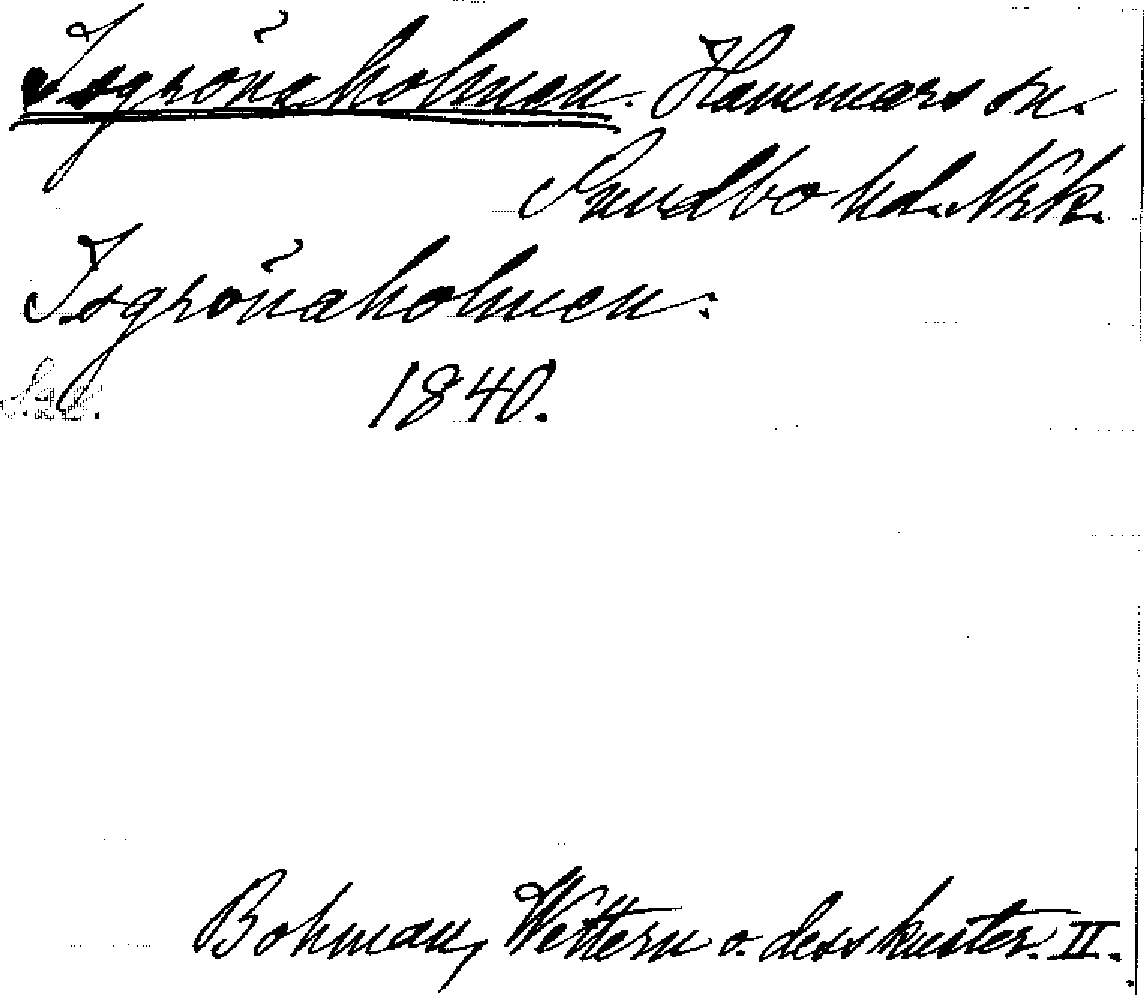 Isgrönaholmen. Hammars sn.
Sundbo hd. Nrk.
Isgrönaholmen:
1840.
Bohman, Wettern o. dess kuster. II.